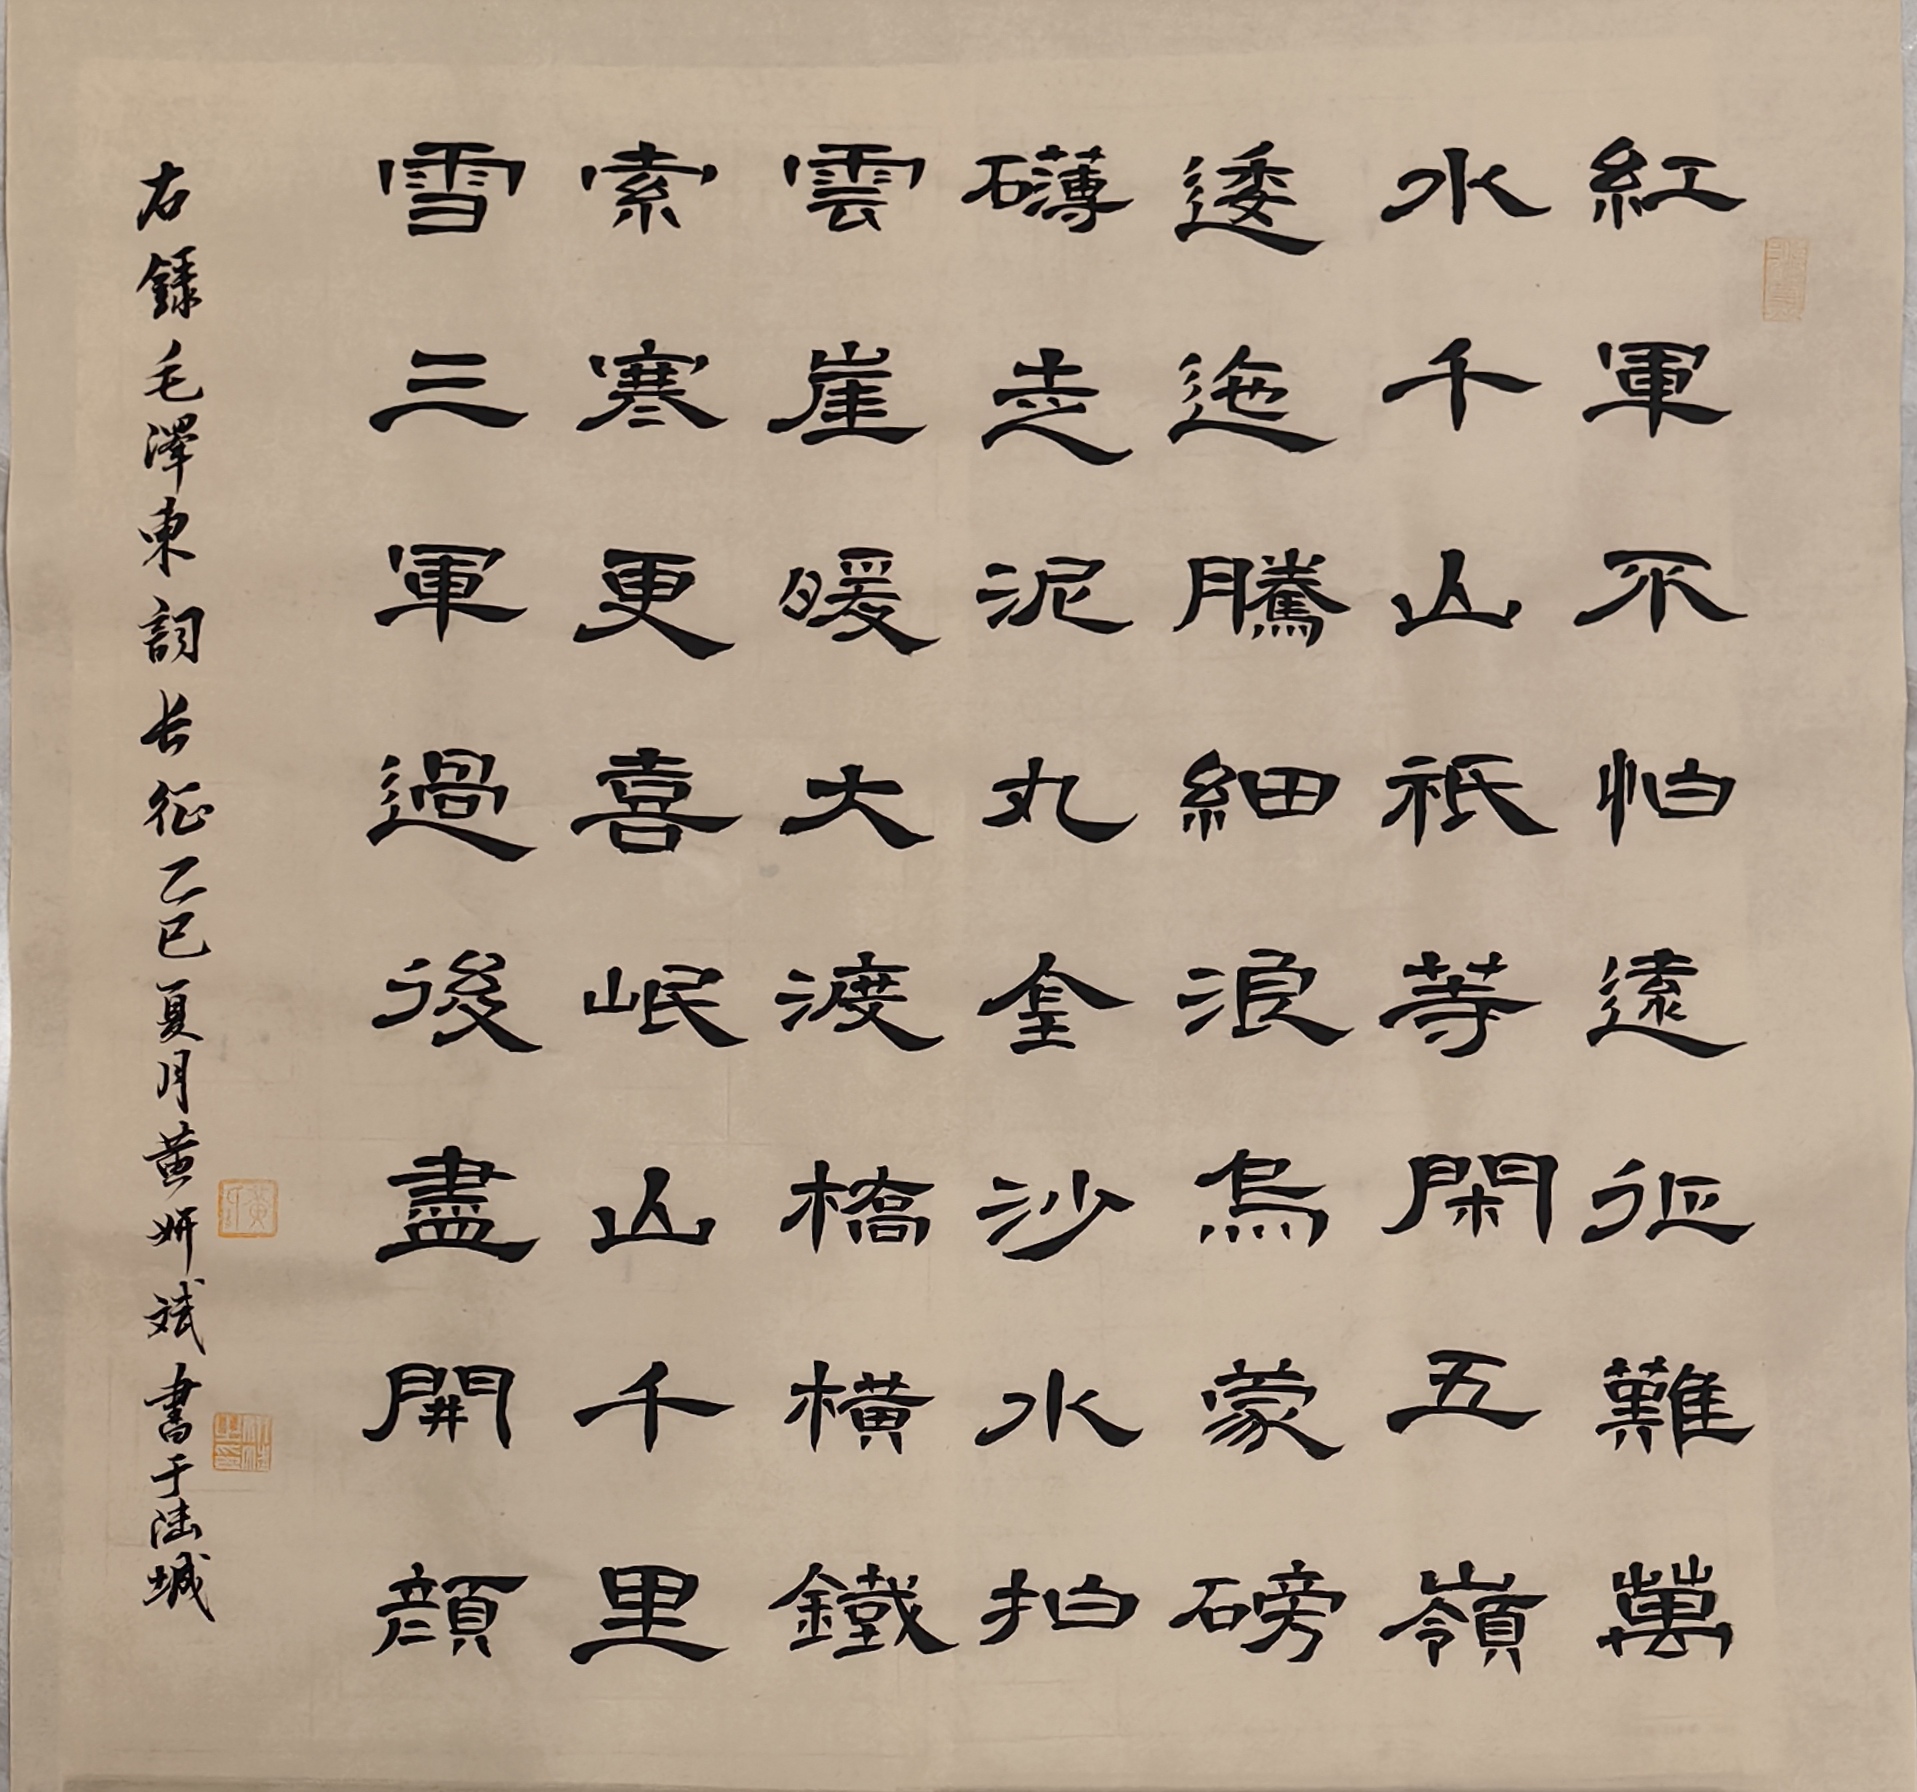 紅軍不怕遠征難萬
水千山祇等閑五嶺
逶迤騰細浪烏蒙磅
礴走泥丸金沙水拍
雲崖暖大渡橋橫鐵
索寒更喜岷山千里
雪三軍過後盡開顔
右錄毛澤東詞长征乙巳夏月黄妍斌書于陆城